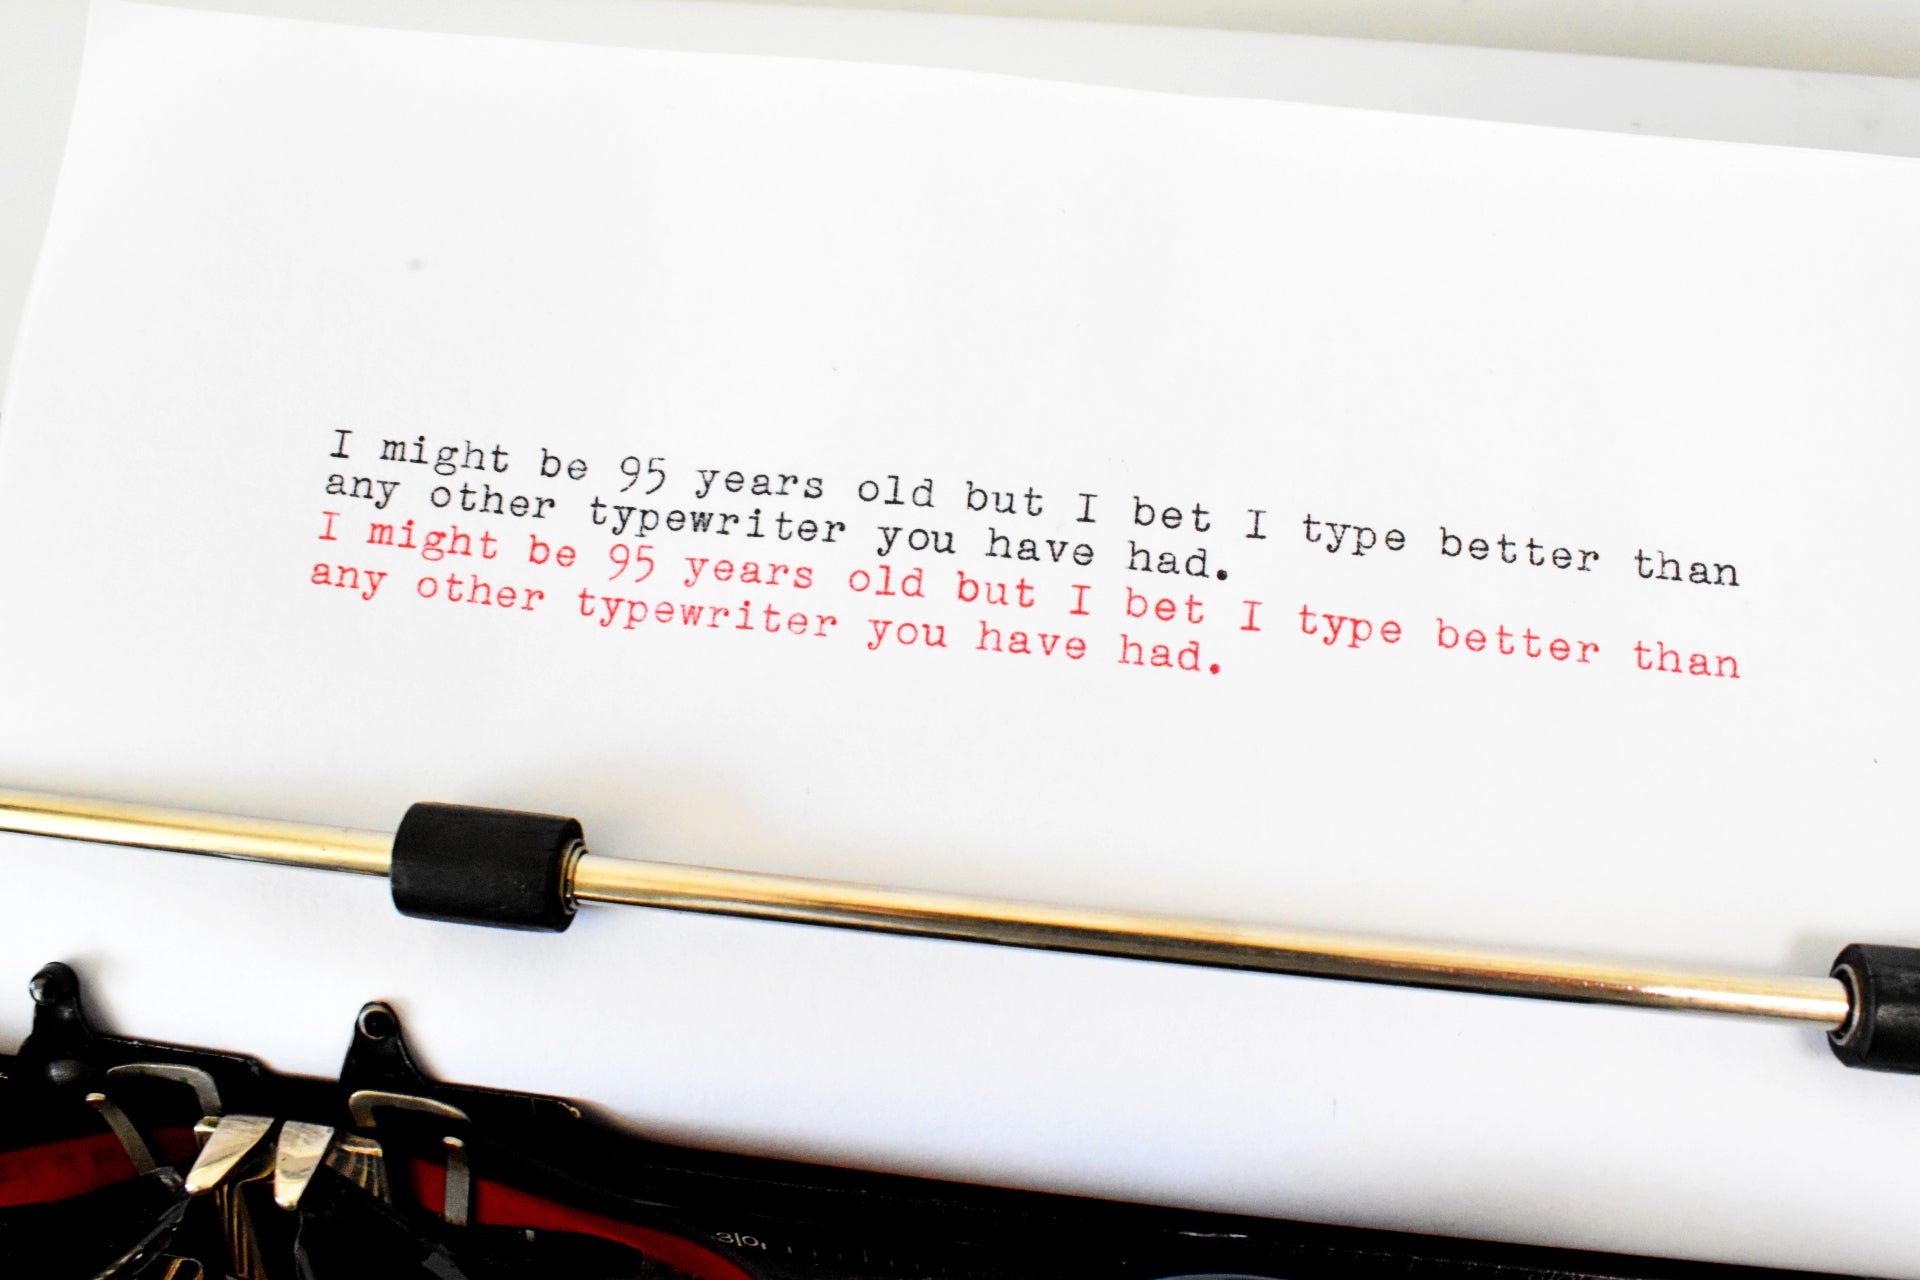 I might be 95 years old but I bet I type better than
any other typewriter you have had.
I might be 95 years old but I bet I type better than
any other typewriter you have had.
30